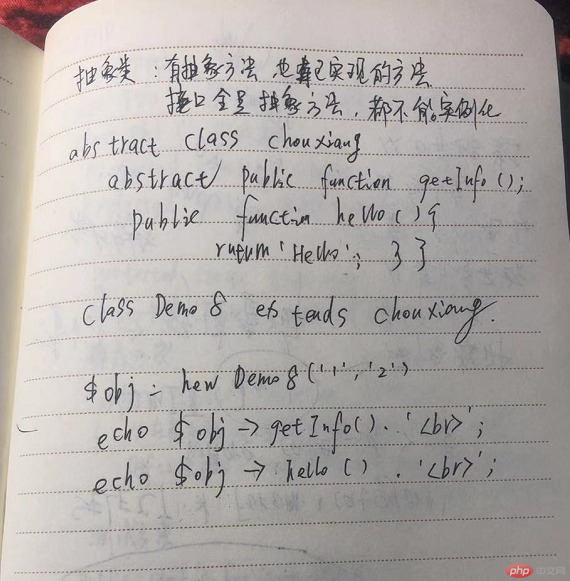 抽象类：有抽象方法 也有已实现的方法
接口全是抽象方法，都不能实例化
abstract class chouxiang
abstract public function getInfo();
public function hello(){
return 'Hello'; } }
class Demo8 extends chouxiang.
$obj = new Demo8('1','2')
echo $obj -> getInfo().'<br>';
echo $obj -> hello() .'<br>';
php 中文网